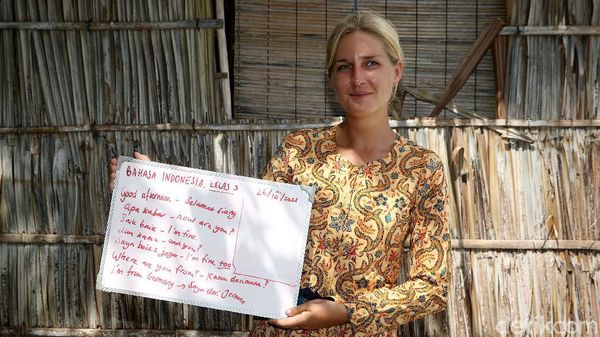 BAHASA INDONESIA. KELAS 3
26/10/2021
good afternoon - Selamat siang
apa kabar - how are you?
Baik baik - I'm fine
dan kamu - and you?
saya baik2 juga - I'm fine too
Where are you from? - Kamu darimana?
I'm from Germany → Saya dari Jerman
detikcom